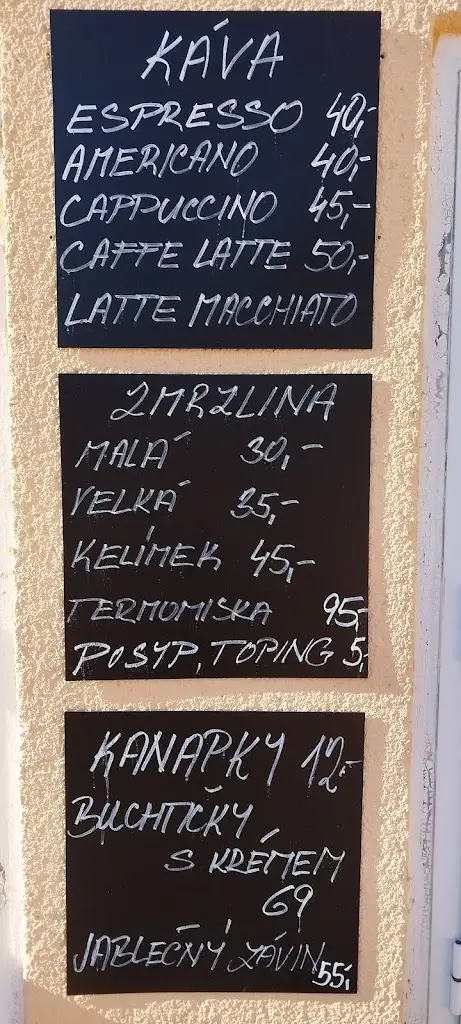 KÁVA
ESPRESSO 40,-
AMERICANO 40,-
CAPPUCCINO 45,-
CAFFE LATTE 50,-
LATTE MACCHIATO
ZMRZLINA
MALÁ 30,-
VELKÁ 35,-
KELÍMEK 45,-
TERMOMISKA 95,-
POSYP, TOPING 5,-
KANAPKY 12,-
BUCHTIČKY
S KRÉMEM
69
JABLEČNÝ ZÁVIN 55,-